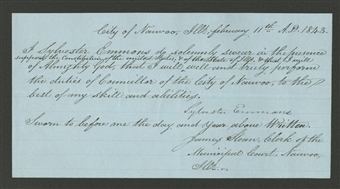 City of Nauvoo, Ills, february 11th A.D. 1843.
I Sylvester Emmons do solemnly swear in the presence
support the Constitution of the United States, & of the State of Ills, & that I will
of Almighty God, that I will well and truly perform
the duties of Councillor of the City of Nauvoo, to the
best of my skill and abilities.
Sylvester Emmons
Sworn to before me the day and year above Written.
James Sloan, Clerk of the
Municipal Court, Nauvoo,
Ills.